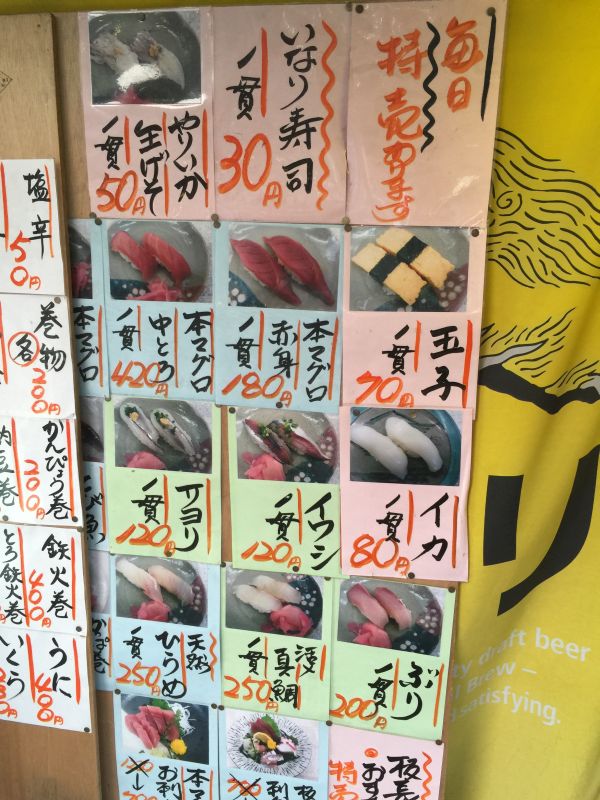 毎日
特売あります
いなり寿司
一貫
30円
やりいか
生げそ
一貫
50円
玉子
一貫
70円
本マグロ
赤身
一貫
180円
本マグロ
中とろ
一貫
420円
本マグロ
イカ
一貫
80円
イワシ
一貫
120円
サヨリ
一貫
120円
ぶり
一貫
200円
真鯛
一貫
250円
天然
ひらめ
一貫
250円
板長
おす
特
本マ
お刺
塩辛
50円
巻物
各
200円
かんぴょう巻
200円
鉄火巻
400円
とろ鉄火巻
うに
400円
いくら
リ
ty draft beer
l Brew –
d satisfying.